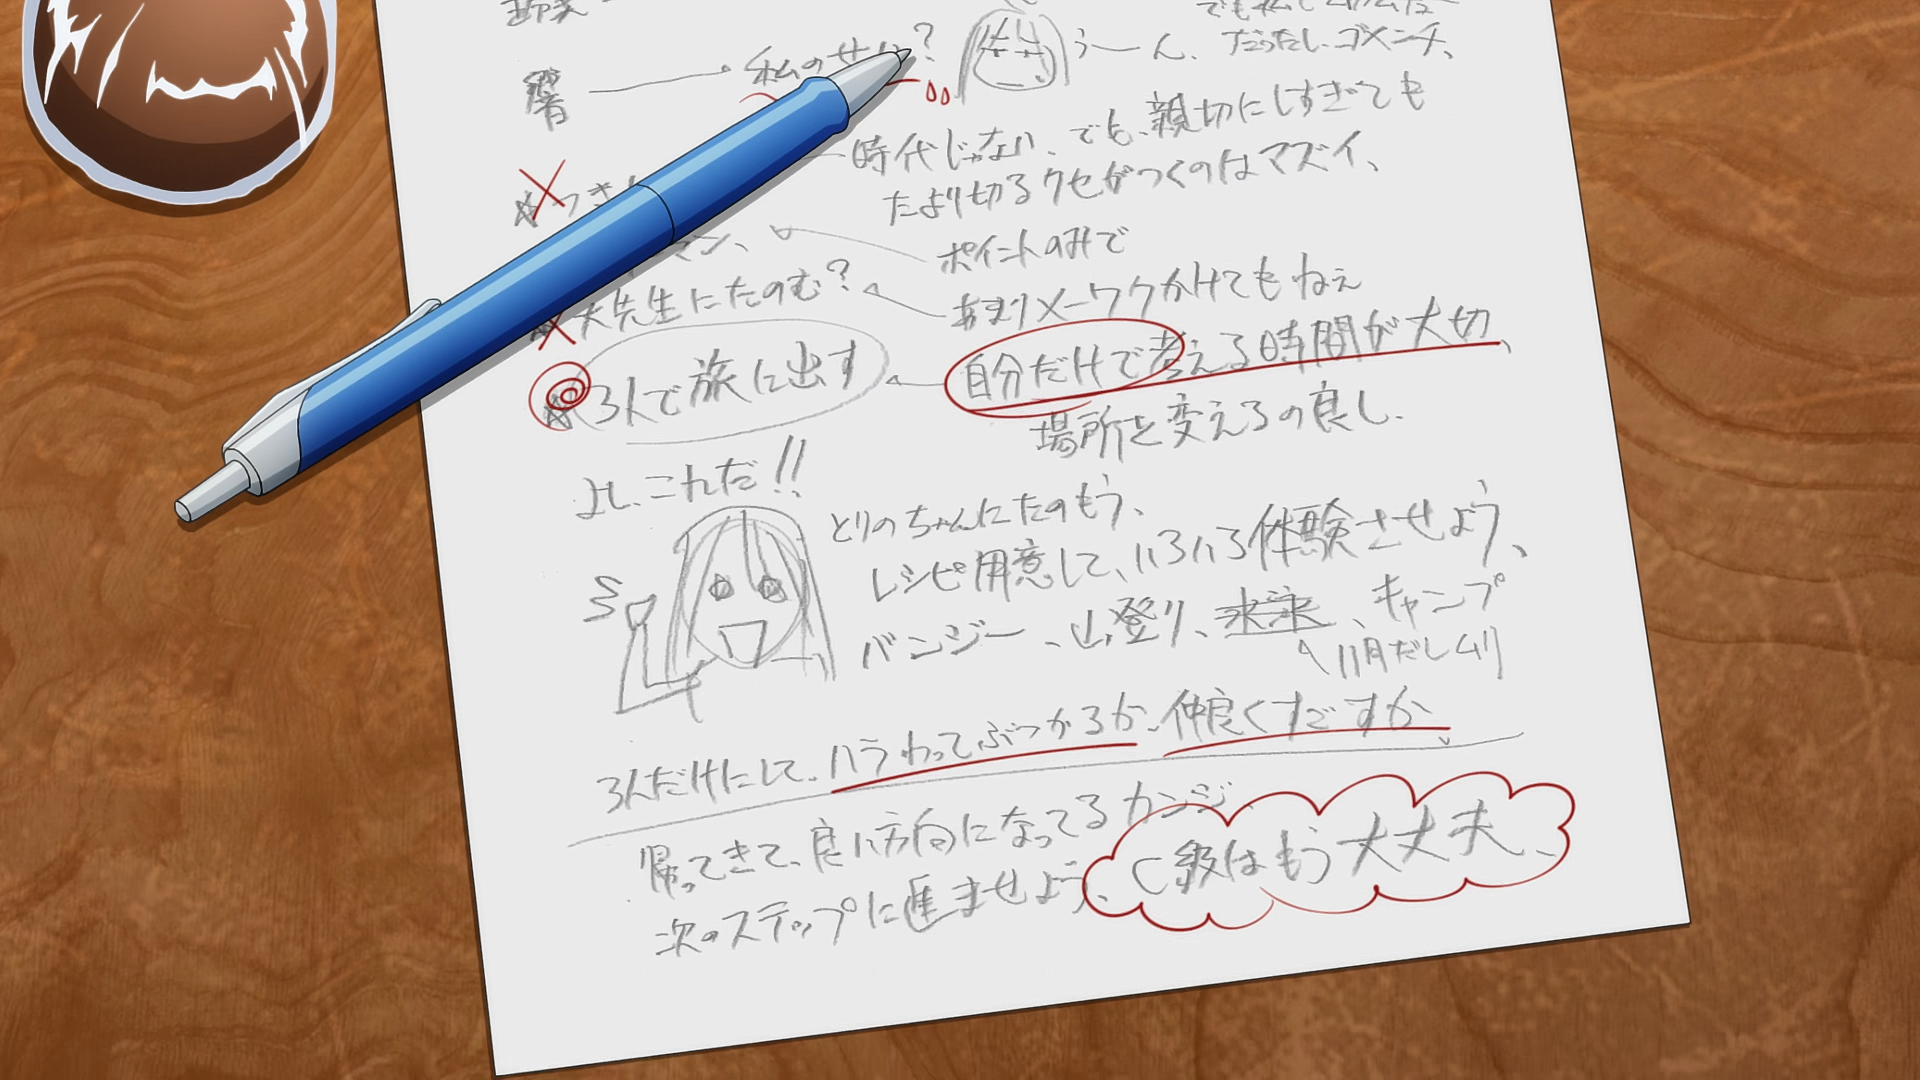 でも私
だったし、ゴメンチ、
響 私のせい? うーん、
時代じゃない、でも、親切にしすぎても
たより切るクセがつくのはマズイ、
マン、 ポイントのみで
先生にたのむ? あまりメーワクかけてもねぇ
3人で旅に出す 自分だけで考える時間が大切、
場所を変えるの良し.
よし、これだ!!
とりのちゃんにたのもう、
レシピ用意して、いろいろ体験させよう、
バンジー、山登り、 、キャンプ
11月だしムリ
3人だけにして、ハラわってぶつかるか、仲良くすごすか
帰ってきて、良い方向になってるカンジ
次のステップに進ませよう、C級はもう大丈夫、